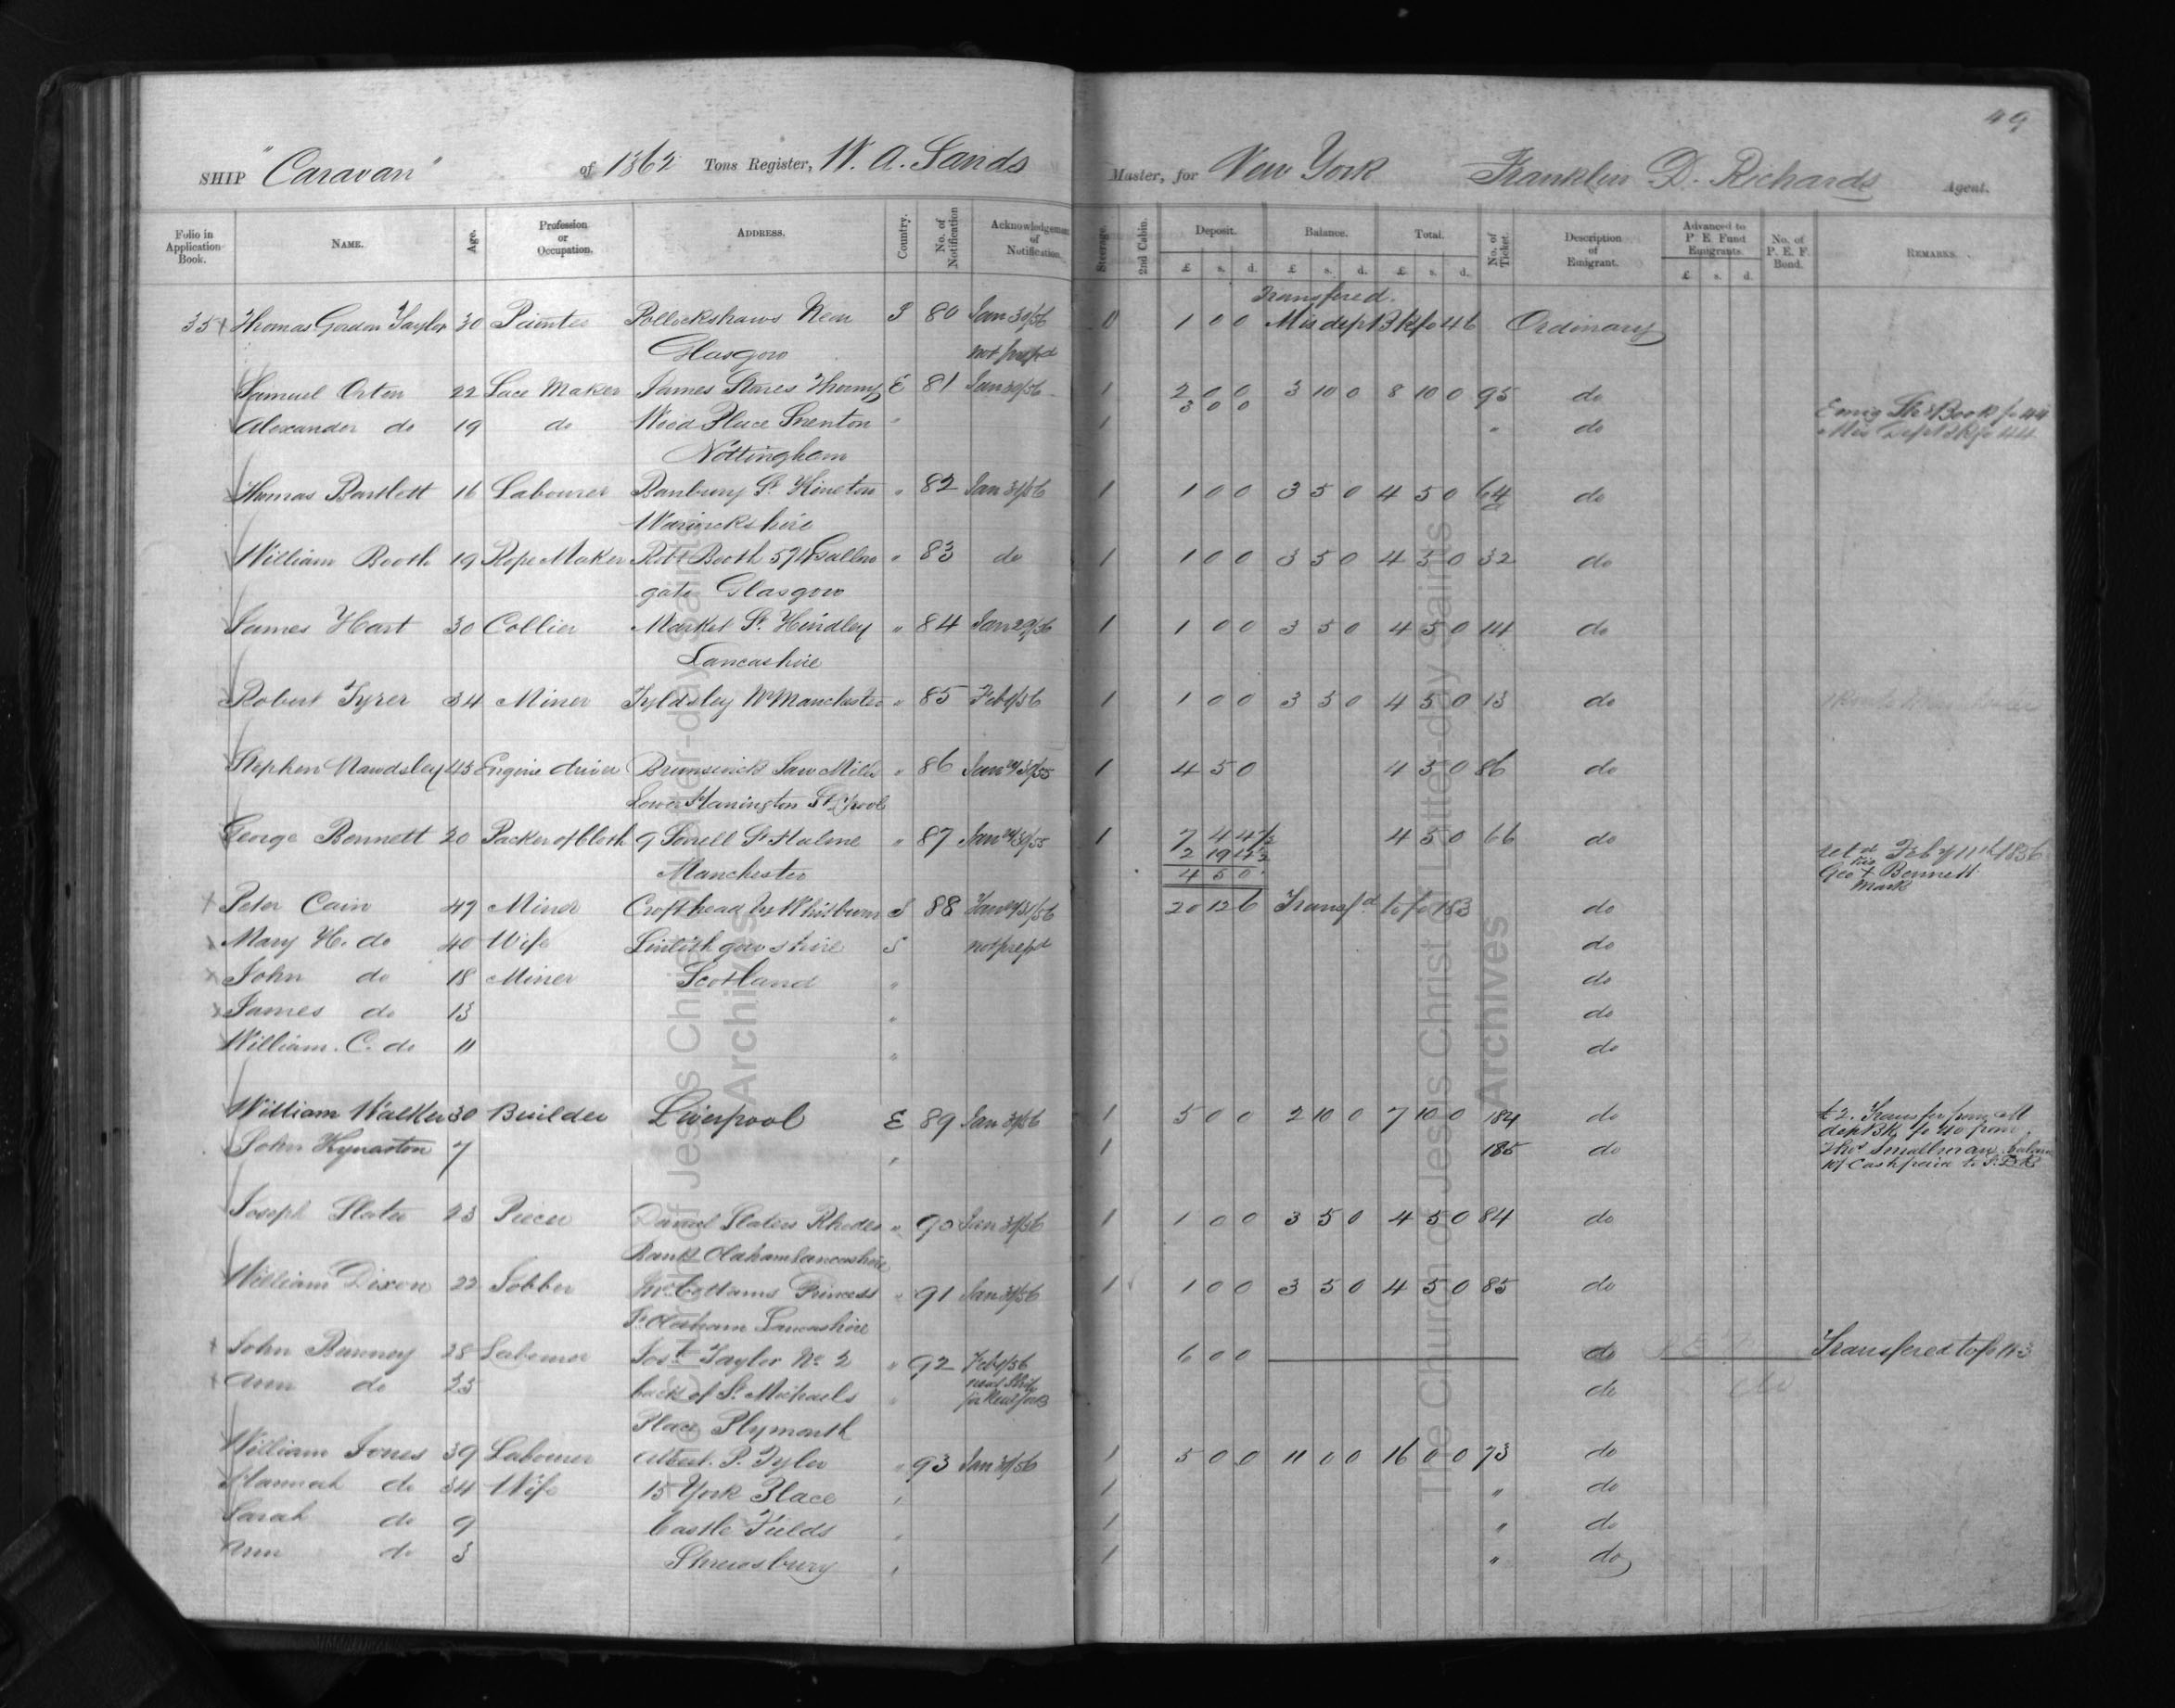 49
SHIP "Caravan" of 1362 Tons Register, W. A. Sands Master, for New York Franklin D. Richards Agent.
Folio in Application Book. NAME. Age. Profession or Occupation. ADDRESS. Country. No. of Notification Acknowledgement of Notification. Steerage. 2nd Cabin. Deposit. £ s. d. Balance. £ s. d. Total. £ s. d. No. of Ticket. Description of Emigrant. Advanced to P E Fund Emigrants. £ s. d. No. of P. E. F. Bond. REMARKS.
Transfered.
35 Thomas Gordon Taylor 30 Pollickshaws Near S 80 Jan 30/56 0 1 0 0 Mis dept Bk fo 46 Ordinary
Glasgow not prep'd
Samuel Orton 22 Lace Maker James Stores Thorny E 81 Jan 30/56 1 2 0 0 3 10 0 8 10 0 95 do
3 0 0 Emig Book fo 44
Alexander do 19 do Wood Place Snenton " 1 " do Mis Dept Bk fo 44
Nottingham
Thomas Bartlett 16 Labourer Banbury St Kineton " 82 Jan 31/56 1 1 0 0 3 5 0 4 5 0 64 do
Warwickshire
William Booth 19 Rope Maker Robt Booth 574 Gallow " 83 do 1 1 0 0 3 5 0 4 5 0 32 do
gate Glasgow
James Hart 30 Collier Market St. Hindley " 84 Jan 29/56 1 1 0 0 3 5 0 4 5 0 14 do
Lancashire
Robert Tyrer 34 Miner Tyldsley Nr Manchester " 85 Feb 1/56 1 1 0 0 3 5 0 4 5 0 13 do
Stephen Mawdsley 43 Engine driver Brunswick Saw Mills " 86 1 4 5 0 4 5 0 86 do
Lower Harrington St L'pool
George Bennett 20 Packer of Cloth 9 St Hulme " 87 1 7 4 4½ 4 5 0 66 do
2 19 4½ ret'd Feby 11th 1856
Manchester 4 5 0 Geo his + Bennett
mark
Peter Cain 49 Miner Crofthead by Whitburn S 88 20 12 6 Transf'd to fo 183 do
Mary H. do 40 Wife Linlithgowshire S not prep'd do
John do 18 Miner Scotland " do
James do 13 " do
William. C. do 11 " do
William Walker 30 Builder Liverpool E 89 Jan 31/56 1 5 0 0 2 10 0 7 10 0 184 do £2. Transfer from M
dep Bk fo 40 from
John Kynaston 7 " 1 185 do Thos Smallman. balance
10/ Cash paid to
Joseph Slater 23 Piecer Daniel Slaters Rhodes " 90 Jan 31/56 1 1 0 0 3 5 0 4 5 0 84 do
Bank Oldham Lancashire
William Dixon 22 Jobber Princess " 91 Jan 31/56 1 1 0 0 3 5 0 4 5 0 85 do
St Oldham Lancashire
John Bunney 28 Labourer Taylor No 2 " 92 Feb 1/56 6 0 0 do Transfered to fo 113
next Ship
Ann do 25 back of St. Michaels " for New York do
Place Plymouth
William Jones 39 Labourer Albert. P. Tyler " 93 Jan 31/56 1 5 0 0 11 0 0 16 0 0 73 do
Hannah do 34 Wife 15 York Place " 1 " do
Sarah do 9 Castle Fields " 1 " do
Ann do 3 Shrewsbury " 1 " do
The Church of Jesus Christ of Latter-day Saints
Archives
The Church of Jesus Christ of Latter-day Saints
Archives